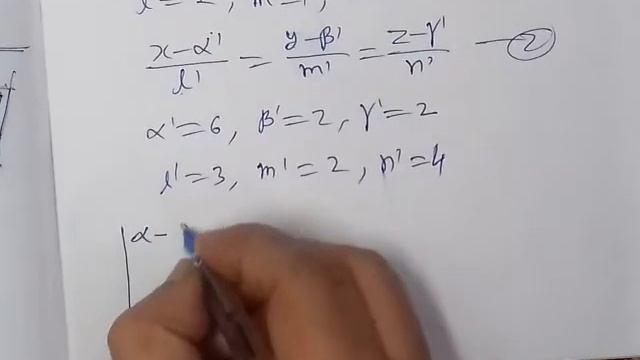 x-α'/l' = y-β'/m' = z-γ'/n' — 2
α'=6, β'=2, γ'=2
l'=3, m'=2, n'=4
|α-